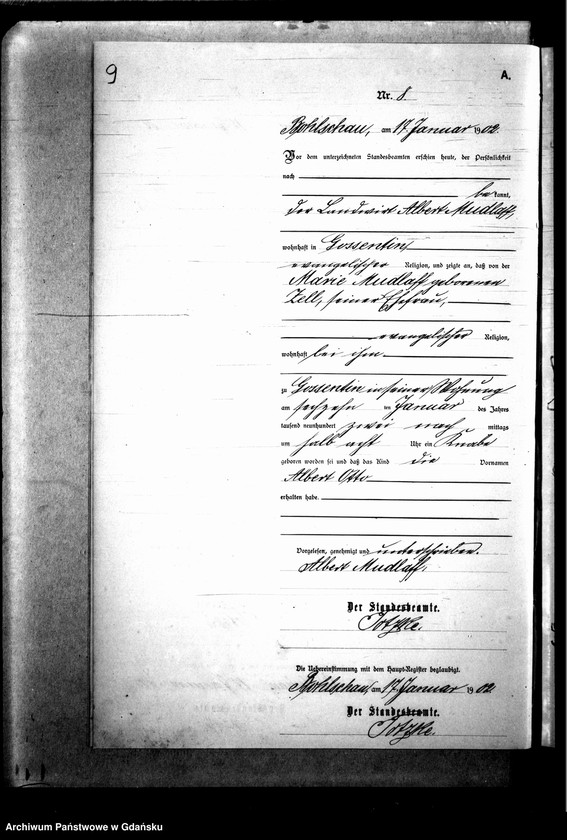 9
A.
Nr. 8
Bohlschau, am 17 Januar 1902.
Vor dem unterzeichneten Standesbeamten erschien heute, der Persönlichkeit
nach
bekannt,
der Landwirt Albert Mudlaff,
wohnhaft in Gossentin
evangelischer Religion, und zeigte an, daß von der
Marie Mudlaff geborenen
Zell, seiner Ehefrau,
evangelischer Religion,
wohnhaft bei ihm
zu Gossentin in seiner Wohnung
am sechzehn ten Januar des Jahres
tausend neunhundert zwei nach mittags
um halb acht Uhr ein Knabe
geboren worden sei und daß das Kind die Vornamen
Albert Otto
erhalten habe.
Vorgelesen, genehmigt und unterschrieben.
Albert Mudlaff.
Der Standesbeamte.
Die Uebereinstimmung mit dem Haupt-Register beglaubigt.
Bohlschau, am 17 Januar 1902.
Der Standesbeamte.
Archiwum Państwowe w Gdańsku